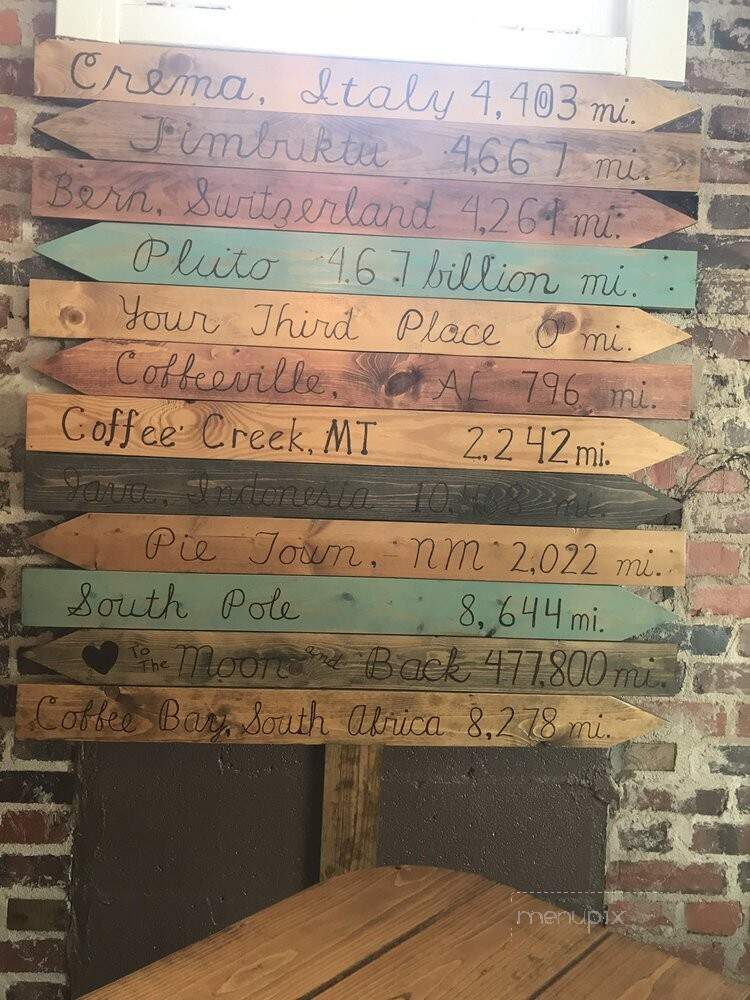 Crema, Italy 4,403 mi.
Timbuktu 4,667 mi.
Bern, Switzerland 4,261 mi.
Pluto 4.67 billion mi.
Your Third Place 0 mi.
Coffeeville, AL 796 mi.
Coffee Creek, MT 2,242 mi.
Java, Indonesia mi.
Pie Town, NM 2,022 mi.
South Pole 8,644 mi.
To The Moon and Back 477,800 mi.
Coffee Bay, South Africa 8,278 mi.
menupix